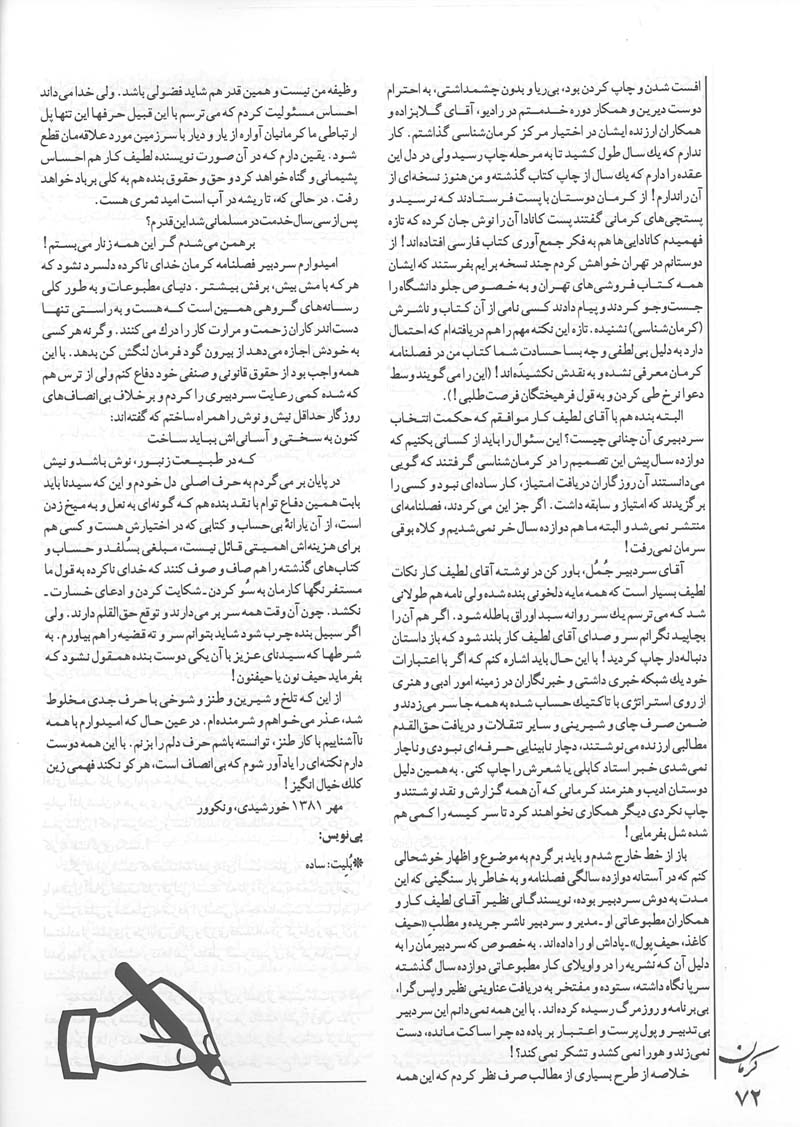 افست شدن و چاپ کردن بود، بی‌ریا و بدون چشمداشتی، به احترام
دوست دیرین و همکار دوره خدمتم در رادیو، آقای گلابزاده و
همکاران ارزنده ایشان در اختیار مرکز کرمان‌شناسی گذاشتم. کار
ندارم که یک سال طول کشید تا به مرحله چاپ رسید ولی در دل این
عقده را دارم که یک سال از چاپ کتاب گذشته و من هنوز نسخه‌ای از
آن را ندارم! از کرمان دوستان با پست فرستادند که نرسید و
پستچی‌های کرمانی گفتند پست کانادا آن را نوش جان کرده که تازه
فهمیدم کانادایی‌ها هم به فکر جمع‌آوری کتاب فارسی افتاده‌اند! از
دوستانم در تهران خواهش کردم چند نسخه برایم بفرستند که ایشان
همه کتاب فروشی‌های تهران و به خصوص جلو دانشگاه را
جست‌وجو کردند و پیام دادند کسی نامی از آن کتاب و ناشرش
(کرمان‌شناسی) نشنیده. تازه این نکته مهم را هم دریافته‌ام که احتمال
دارد به دلیل بی‌لطفی و چه بسا حسادت شما کتاب من در فصلنامه
کرمان معرفی نشده و به نقدش نکشیده‌اند! (این را می‌گویند وسط
دعوا نرخ طی کردن و به قول فرهیختگان فرصت‌طلبی!).
البته بنده هم با آقای لطیف کار موافقم که حکمت انتخاب
سردبیری آن چنانی چیست؟ این سئوال را باید از کسانی بکنیم که
دوازده سال پیش این تصمیم را در کرمان‌شناسی گرفتند که گویی
می‌دانستند آن روزگاران دریافت امتیاز، کار ساده‌ای نبود و کسی را
برگزیدند که امتیاز و سابقه داشت. اگر جز این می‌کردند، فصلنامه‌ای
منتشر نمی‌شد و البته ما هم دوازده سال خر نمی‌شدیم و کلاه بوقی
سرمان نمی‌رفت!
آقای سردبیر جُمُل، باور کن در نوشته آقای لطیف کار نکات
لطیف بسیار است که همه مایه دلخونی بنده شده ولی نامه هم طولانی
شد که می‌ترسم یک سر روانه سبد اوراق باطله شود. اگر هم آن را
بچاپید نگرانم سر و صدای آقای لطیف کار بلند شود که باز داستان
دنباله‌دار چاپ کردید! با این حال باید اشاره کنم که اگر با اعتبارات
خود یک شبکه خبری داشتی و خبرنگاران در زمینه امور ادبی و هنری
از روی استراتژی با تاکتیک حساب شده به همه جا سر می‌زدند و
ضمن صرف چای و شیرینی و سایر تنقلات و دریافت حق‌القدم
مطالبی ارزنده می‌نوشتند، دچار نابینایی حرفه‌ای نبودی و ناچار
نمی‌شدی خبر استاد کابلی یا شعرش را چاپ کنی. به همین دلیل
دوستان ادیب و هنرمند کرمانی که آن همه گزارش و نقد نوشتند و
چاپ نکردی دیگر همکاری نخواهند کرد تا سر کیسه را کمی هم
شده شل بفرمایی!
باز از خط خارج شدم و باید برگردم به موضوع و اظهار خوشحالی
کنم که در آستانه دوازده سالگی فصلنامه و به خاطر بار سنگینی که این
مدت به دوش سردبیر بوده، نویسندگانی نظیر آقای لطیف کار و
همکاران مطبوعاتی او ـ مدیر و سردبیر ناشر جریده و مطلب «حیف
کاغذ، حیف پول» ـ پاداش او را داده‌اند. به خصوص که سردبیرمان را به
دلیل آن که نشریه را در واویلای کار مطبوعاتی دوازده سال گذشته
سرپا نگاه داشته، ستوده و مفتخر به دریافت عناوینی نظیر واپس گرا،
بی‌برنامه و روزمرگ رسیده کرده‌اند. با این همه نمی‌دانم این سردبیر
بی‌تدبیر و پول پرست و اعتبار بر باده ده چرا ساکت مانده، دست
نمی‌زند و هورا نمی‌کشد و تشکر نمی‌کند؟!
خلاصه از طرح بسیاری از مطالب صرف نظر کردم که این همه
وظیفه من نیست و همین قدر هم شاید فضولی باشد. ولی خدا می‌داند
احساس مسئولیت کردم که می‌ترسم با این قبیل حرفها این تنها پل
ارتباطی ما کرمانیان آواره از یار و دیار با سرزمین مورد علاقه‌مان قطع
شود. یقین دارم که در آن صورت نویسنده لطیف کار هم احساس
پشیمانی و گناه خواهد کرد و حق و حقوق بنده هم به کلی بر باد خواهد
رفت. در حالی که، تا ریشه در آب است امید ثمری هست.
پس از سی سال خدمت در مسلمانی شد این قدرم؟
برهمن می‌شدم گر این همه زنار می‌بستم!
امیدوارم سردبیر فصلنامه کرمان خدای ناکرده دلسرد نشود که
هر که با مش بیش، برفش بیشتر. دنیای مطبوعات و به طور کلی
رسانه‌های گروهی همین است که هست و به راستی تنها
دست‌اندرکاران زحمت و مرارت کار را درک می‌کنند. وگرنه هر کسی
به خودش اجازه می‌دهد از بیرون گود فرمان لنگش کن بدهد. با این
همه واجب بود از حقوق قانونی و صنفی خود دفاع کنم ولی از ترس هم
که شده کمی رعایت سردبیری را کردم و برخلاف بی‌انصاف‌های
روزگار حداقل نیش و نوش را همراه ساختم که گفته‌اند:
کنون به سختی و آسانی‌اش بباید ساخت
که در طبیعت زنبور، نوش باشد و نیش
در پایان بر می‌گردم به حرف اصلی دل خودم و این که سیدنا باید
بابت همین دفاع توام با نقد بنده هم که گونه‌ای به نعل و به میخ زدن
است، از آن یارانهٔ بی‌حساب و کتابی که در اختیارش هست و کسی هم
برای هزینه‌اش اهمیتی قائل نیست، مبلغی بسُلفد و حساب و
کتاب‌های گذشته را هم صاف و صوف کنند که خدای ناکرده به قول ما
مستفرنگها کارمان به سُو کردن ـ شکایت کردن و ادعای خسارت ـ
نکشد. چون آن وقت همه سر بر می‌دارند و توقع حق‌القلم دارند. ولی
اگر سبیل بنده چرب شود شاید بتوانم سر و ته قضیه را هم بیاورم. به
شرطها که سیدنای عزیز با آن یکی دوست بنده همقول نشود که
بفرماید حیف نون یا حیفنون!
از این که تلخ و شیرین و طنز و شوخی با حرف جدی مخلوط
شد، عذر می‌خواهم و شرمنده‌ام. در عین حال که امیدوارم با همه
ناآشناییم با کار طنز، توانسته باشم حرف دلم را بزنم. با این همه دوست
دارم نکته‌ای را یادآور شوم که بی‌انصاف است، هر کو نکند فهمی زین
کلک خیال انگیز!
مهر ۱۳۸۱ خورشیدی، ونکوور
پی‌نویس:
❊بُلیت: ساده
کرمان
۷۲